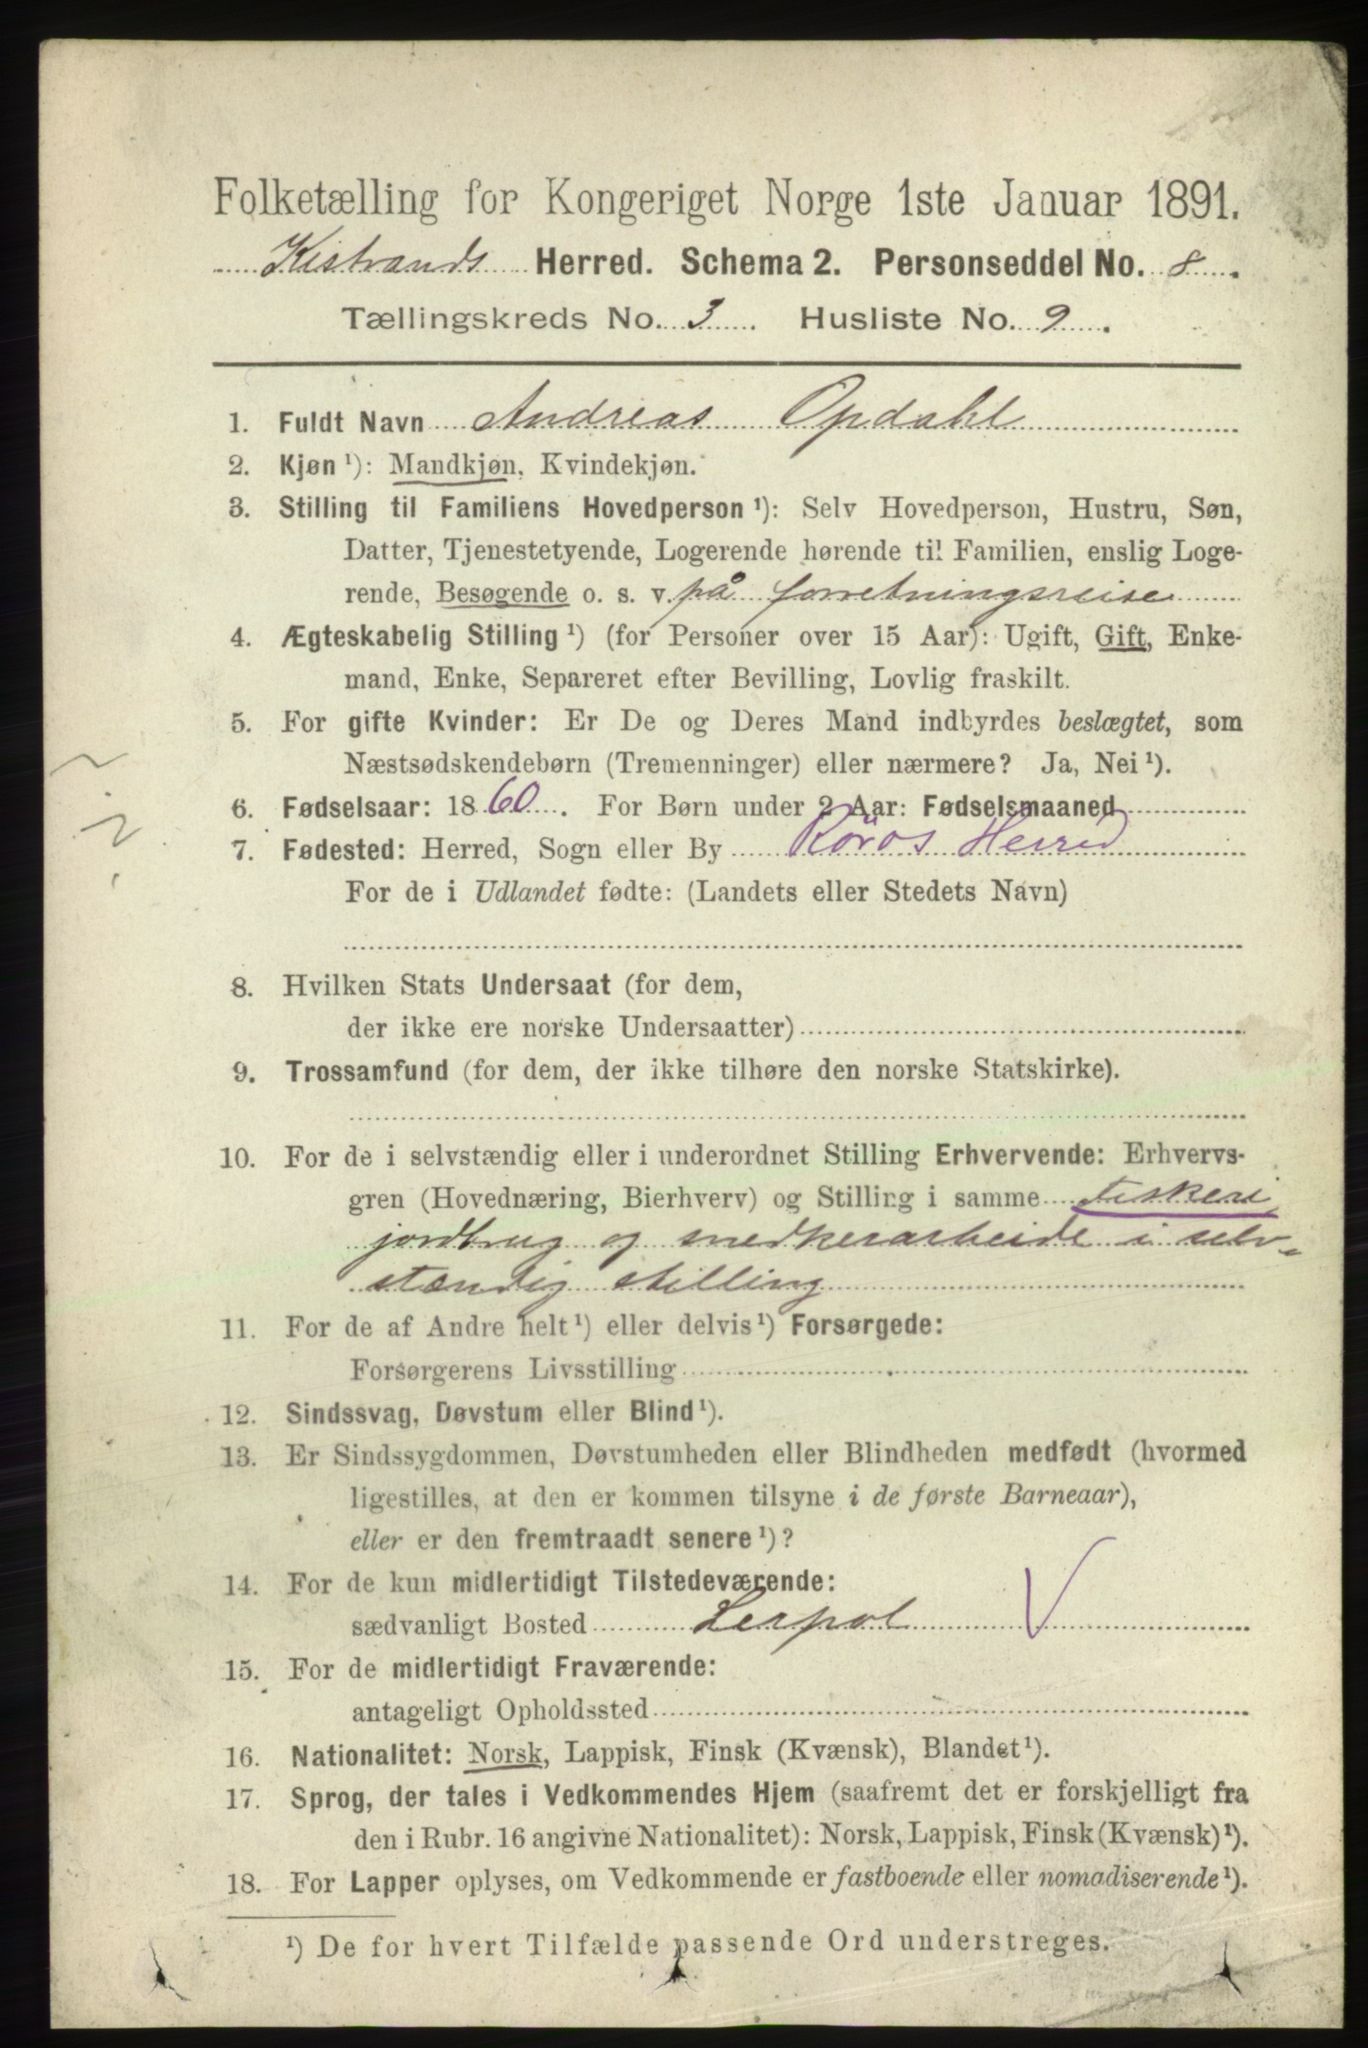 Folketælling for Kongeriget Norge 1ste Januar 1891.
Kistrands Herred. Schema 2. Personseddel No. 8.
Tællingskreds No. 3. Husliste No. 9.
1. Fuldt Navn Andreas Opdahl
2. Kjøn ¹): Mandkjøn, Kvindekjøn.
3. Stilling til Familiens Hovedperson ¹): Selv Hovedperson, Hustru, Søn,
Datter, Tjenestetyende, Logerende hørende til Familien, enslig Loge-
rende, Besøgende o. s. v. på forretningsreise
4. Ægteskabelig Stilling ¹) (for Personer over 15 Aar): Ugift, Gift, Enke-
mand, Enke, Separeret efter Bevilling, Lovlig fraskilt.
5. For gifte Kvinder: Er De og Deres Mand indbyrdes beslægtet, som
Næstsødskendebørn (Tremenninger) eller nærmere? Ja, Nei ¹).
6. Fødselsaar: 1860. For Børn under 2 Aar: Fødselsmaaned
7. Fødested: Herred, Sogn eller By Røros Herred
For de i Udlandet fødte: (Landets eller Stedets Navn)
8. Hvilken Stats Undersaat (for dem,
der ikke ere norske Undersaatter)
9. Trossamfund (for dem, der ikke tilhøre den norske Statskirke).
10. For de i selvstændig eller i underordnet Stilling Erhvervende: Erhvervs-
gren (Hovednæring, Bierhverv) og Stilling i samme fiskeri,
jordbrug og snedkerarbeide i selv-
stændig stilling
11. For de af Andre helt ¹) eller delvis ¹) Forsørgede:
Forsørgerens Livsstilling
12. Sindssvag, Døvstum eller Blind ¹).
13. Er Sindssygdommen, Døvstumheden eller Blindheden medfødt (hvormed
ligestilles, at den er kommen tilsyne i de første Barneaar),
eller er den fremtraadt senere ¹)?
14. For de kun midlertidigt Tilstedeværende:
sædvanligt Bosted Lerpol V
15. For de midlertidigt Fraværende:
antageligt Opholdssted
16. Nationalitet: Norsk, Lappisk, Finsk (Kvænsk), Blandet ¹).
17. Sprog, der tales i Vedkommendes Hjem (saafremt det er forskjelligt fra
den i Rubr. 16 angivne Nationalitet): Norsk, Lappisk, Finsk (Kvænsk) ¹).
18. For Lapper oplyses, om Vedkommende er fastboende eller nomadiserende ¹).
¹) De for hvert Tilfælde passende Ord understreges.